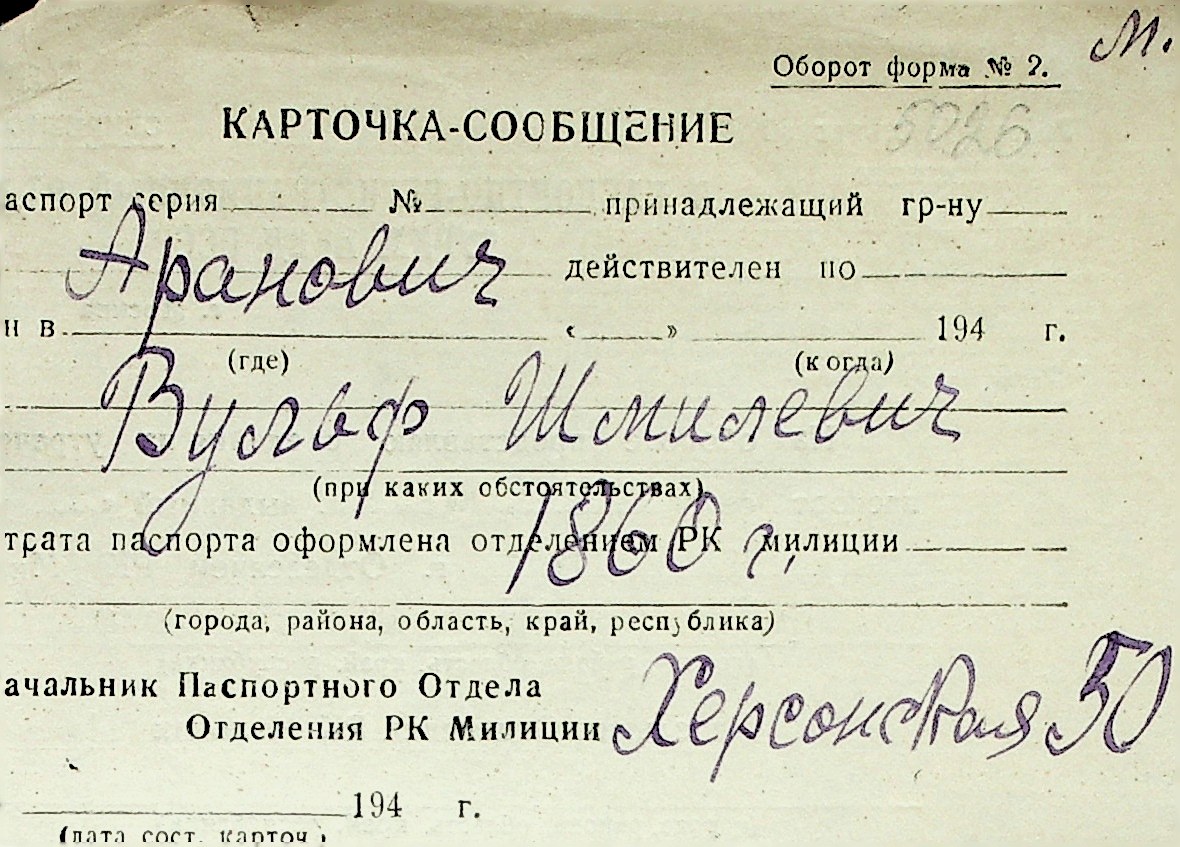 м.
Оборот форма № 2.
КАРТОЧКА-СООБЩЕНИЕ
5026
аспорт серия № принадлежащий гр-ну
Аранович действителен по
н в « » 194 г.
(где) (когда)
Вульф Шмилевич
(при каких обстоятельствах)
1860 г,
трата паспорта оформлена отделением РК милиции
(города, района, область, край, республика)
ачальник Паспортного Отдела
Отделения РК Милиции Херсонская 50
194 г.
(дата сост. карточ.)